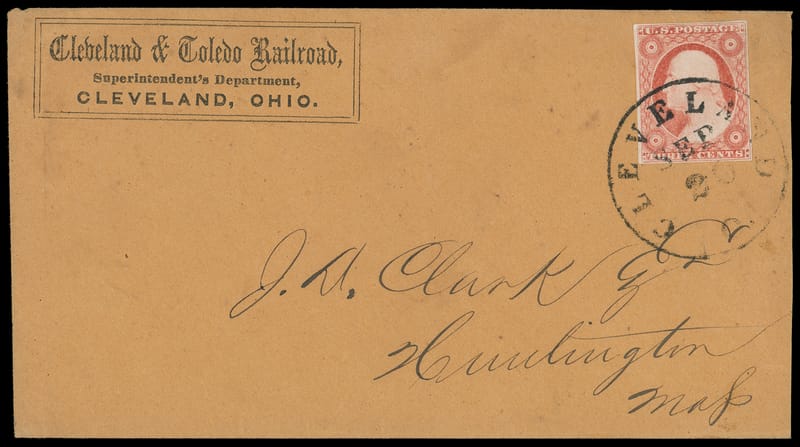 Cleveland & Toledo Railroad,
Superintendent's Department,
CLEVELAND, OHIO.
U.S. POSTAGE
THREE CENTS
CLEVELAND O
SEP
20
J. D. Clark
Huntington
Mass